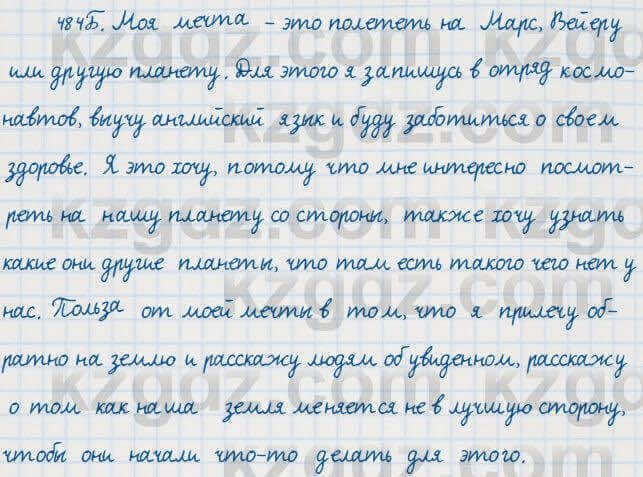 484Б. Моя мечта – это полететь на Марс, Вейеру
или другую планету. Для этого я запишусь в отряд космо-
навтов, выучу английский язык и буду заботиться о своем
здоровье. Я это хочу, потому что мне интересно посмот-
реть на нашу планету со стороны, также хочу узнать
какие они другие планеты, что там есть такого чего нет у
нас. Польза от моей мечты в том, что я прилечу об-
ратно на землю и расскажу людям об увиденном, расскажу
о том как наша земля меняется не в лучшую сторону,
чтобы они начали что-то делать для этого.
kzgdz.com